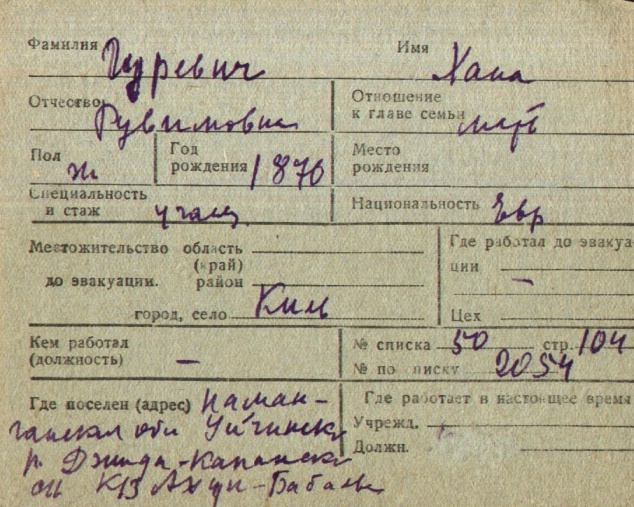 Фамилия Гуревич Имя Хана
Отчество Рувимовна Отношение к главе семьи мать
Пол ж Год рождения 1870 Место рождения
Специальность и стаж Национальность Евр
Местожительство область (край) Где работал до эвакуации —
до эвакуации. район
город, село Цех
Кем работал (должность) — № списка 50 стр. 104
№ по списку 2054
Где поселен (адрес) Наман- Где работает в настоящее время
ганская обл Уйчинск Учрежд.
р. Джида-Капанск Должн.
к/з Ахун-Бабаев